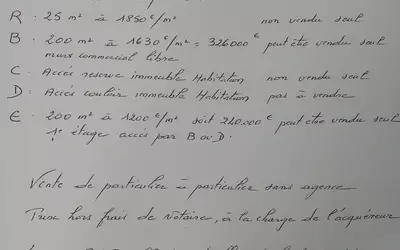 R : 25 m² à 1850 €/m² non vendu seul
B : 200 m² à 1630 €/m² = 326000 € peut être vendu seul
murs commercial libre
C : Accès reserve immeuble Habitation non vendu seul
D : Accès couloir immeuble Habitation pas à vendre
E : 200 m² à 1200 €/m² soit 240.000 € peut être vendu seul
1er étage accès par B ou D.
Vente de particulier à particulier sans agence
Prix hors frais de Notaire, à la charge de l'acquéreur